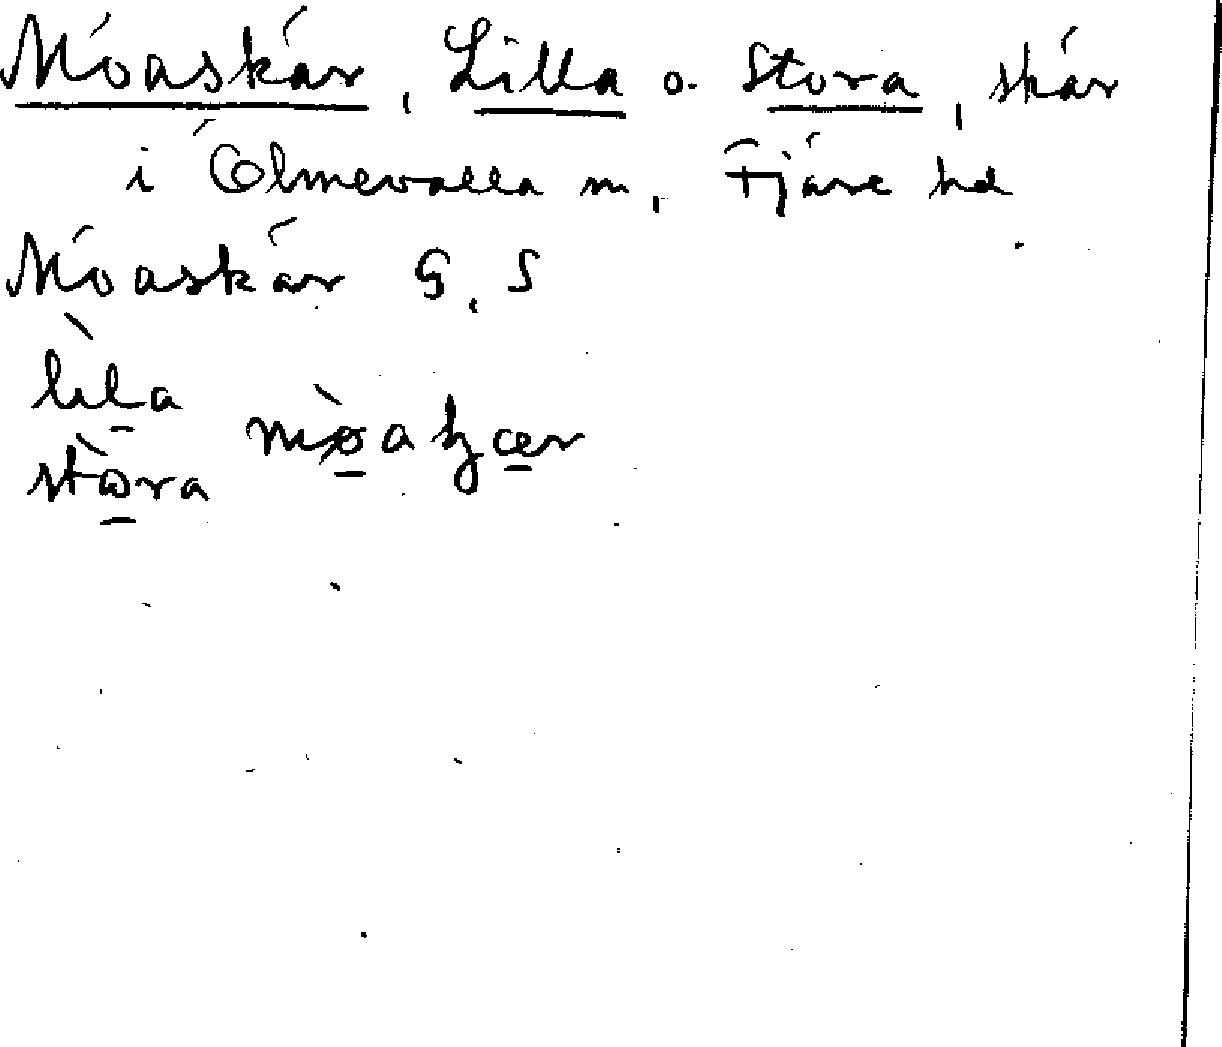 Möaskär, Lilla o. Stora, skär
i Ölmevalla sn, Fjäre hd
Möaskär G, S
lìla
stòra mø̀aʂær